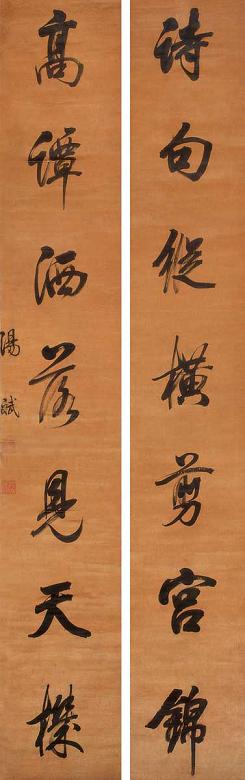 詩句縱橫剪宮錦
高譚洒落見天機
湯斌